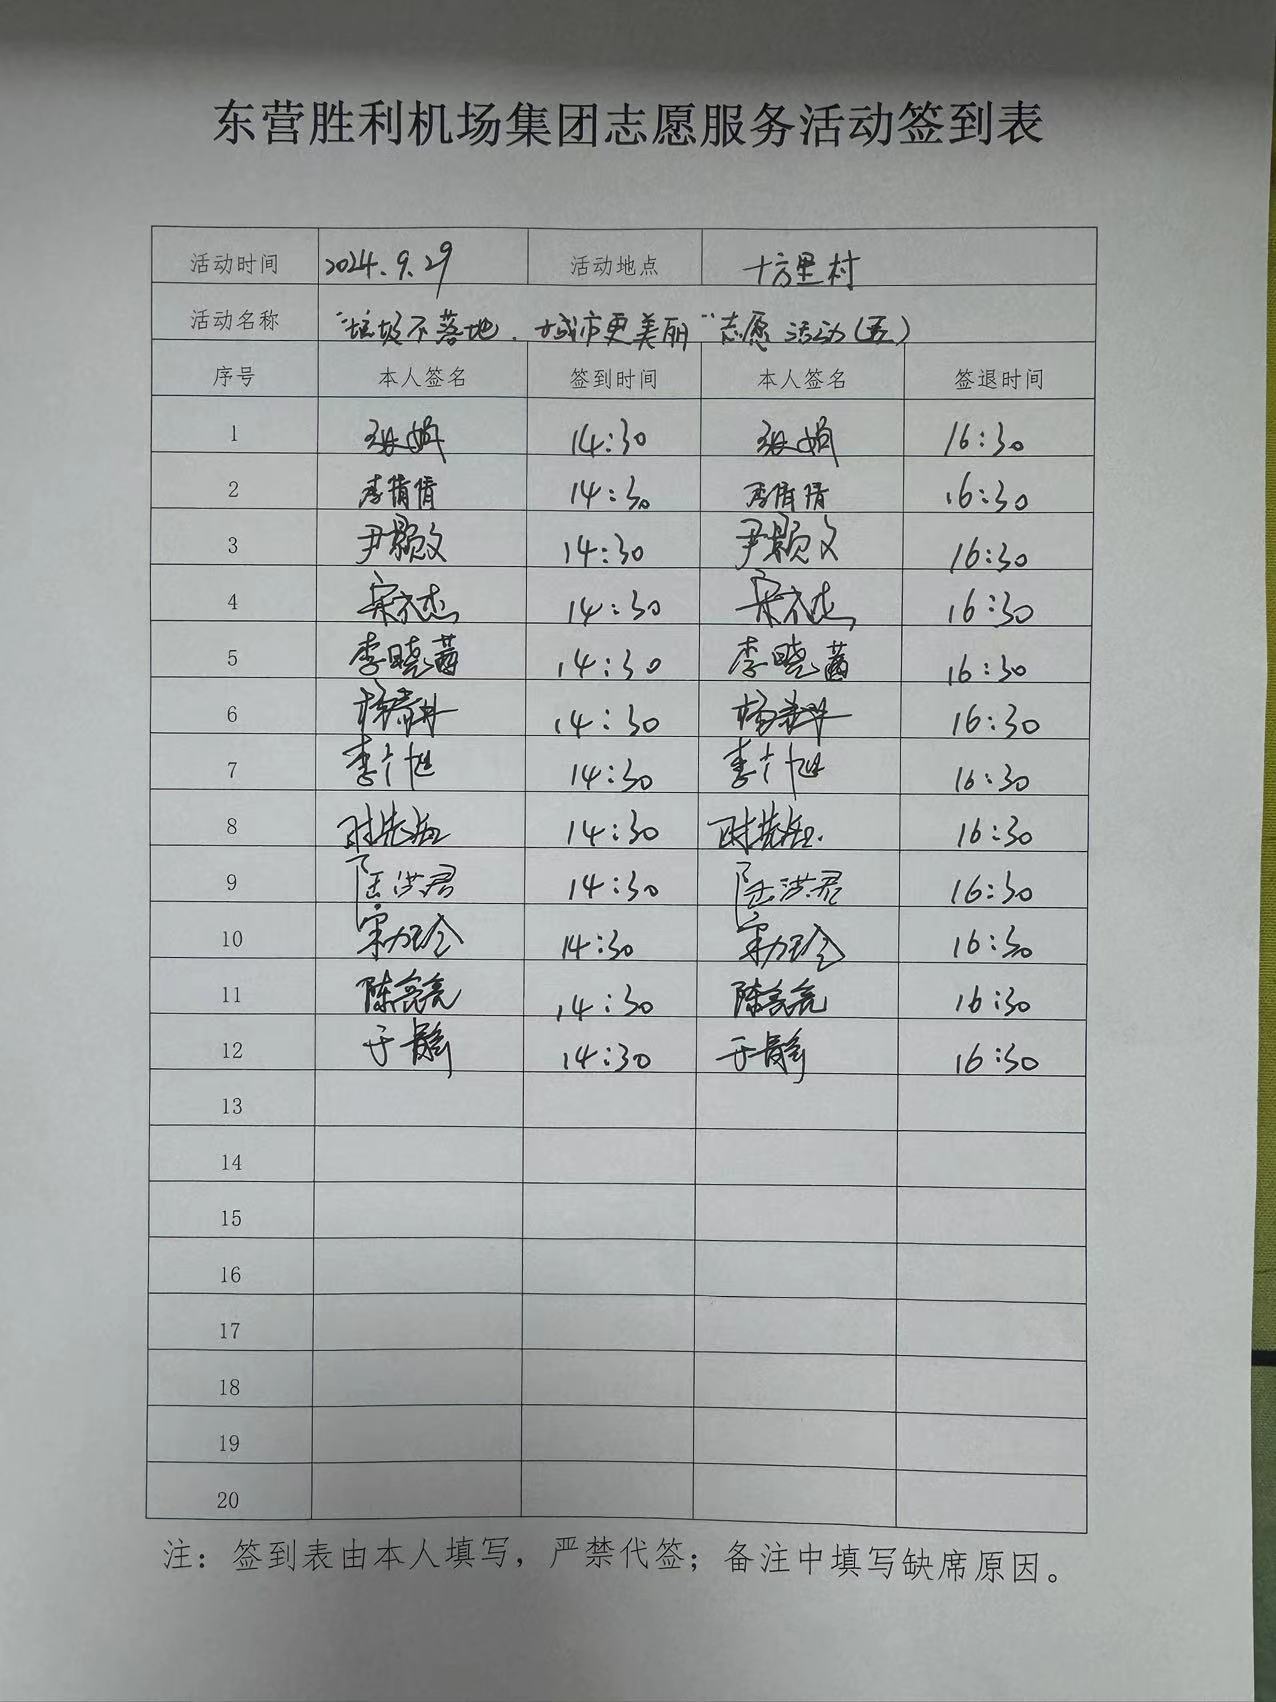 东营胜利机场集团志愿服务活动签到表
活动时间 2024.9.29 活动地点 十方里村
活动名称 "垃圾不落地.城市更美丽"志愿活动(五)
序号 本人签名 签到时间 本人签名 签退时间
1 张娟 14:30 张娟 16:30
2 李倩倩 14:30 李倩倩 16:30
3 尹颢文 14:30 尹颢文 16:30
4 宋杰 14:30 宋杰 16:30
5 李晓茜 14:30 李晓茜 16:30
6 杨 14:30 杨 16:30
7 李 14:30 李 16:30
8 时 14:30 时 16:30
9 洪君 14:30 洪君 16:30
10 宋珍 14:30 宋珍 16:30
11 陈亮亮 14:30 陈亮亮 16:30
12 于静 14:30 于静 16:30
13
14
15
16
17
18
19
20
注：签到表由本人填写，严禁代签；备注中填写缺席原因。